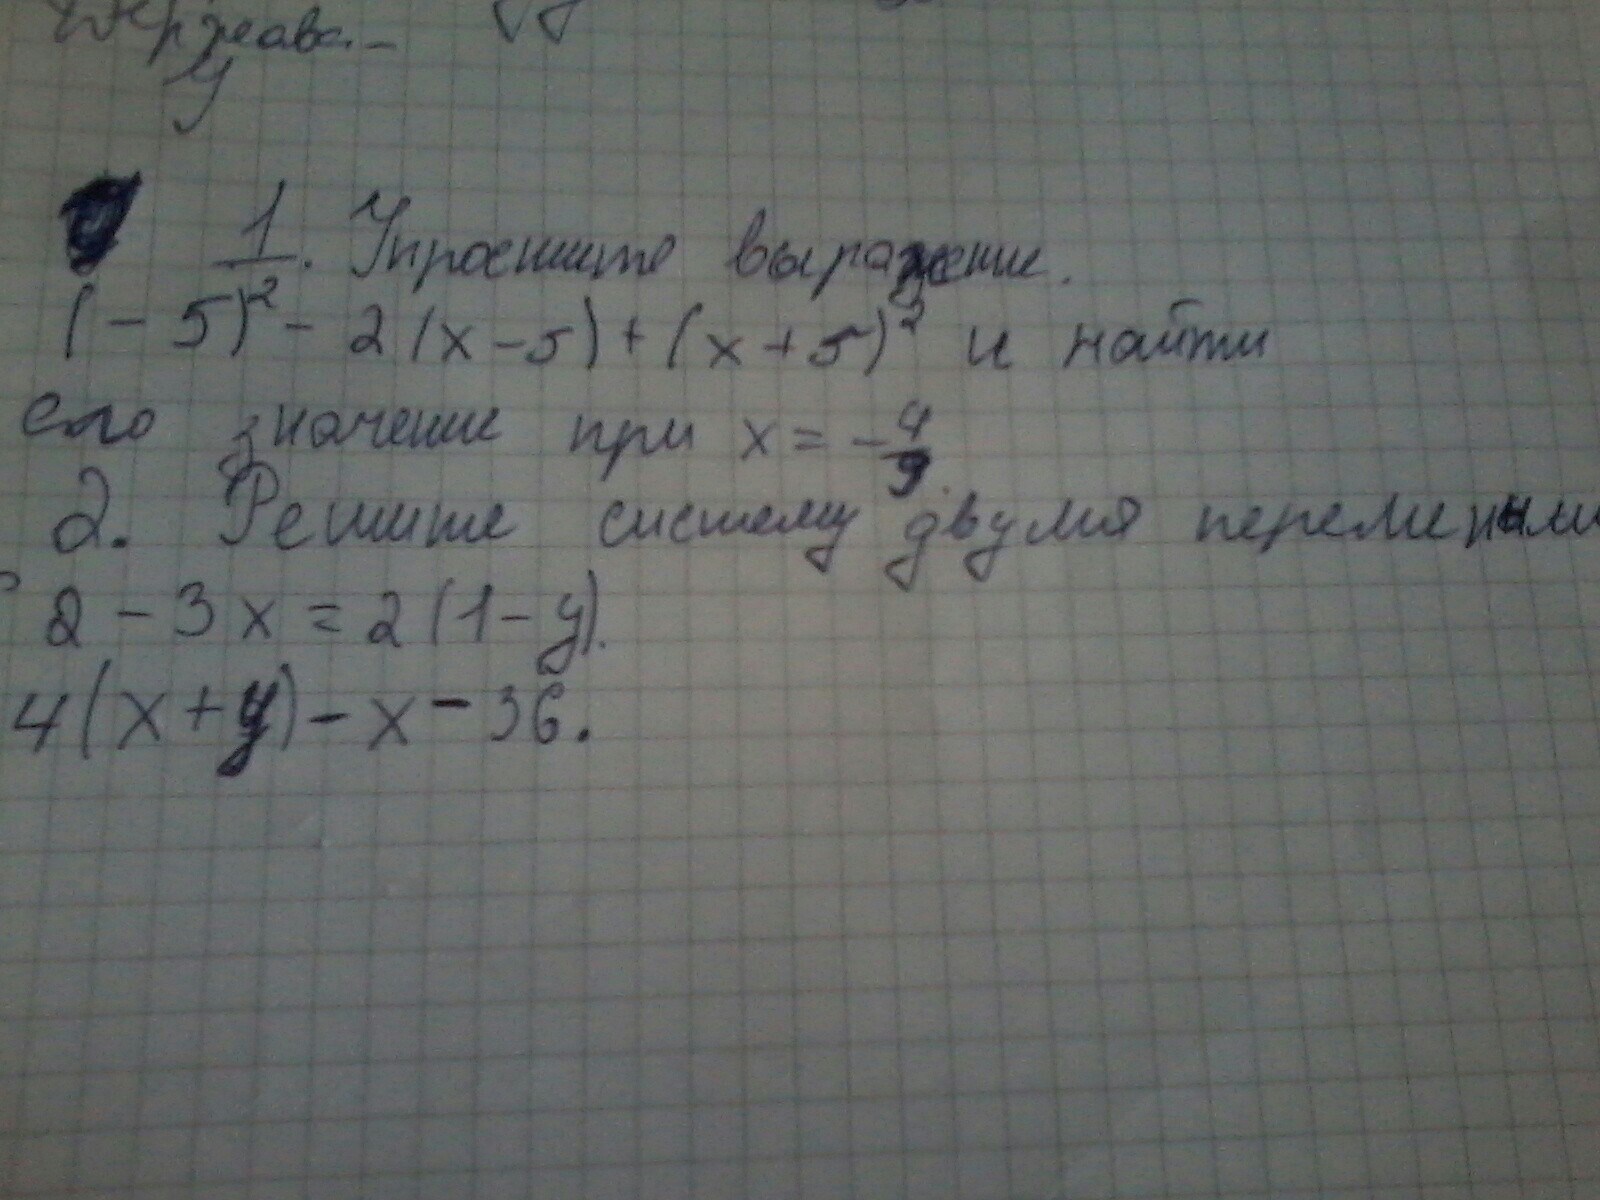 Держава -
У
1. Упростите выражение.
(- 5)² - 2(x-5)+(x+5)² и найти
его значение при x = -4/9
2. Решите систему двумя перемеными
2 - 3x = 2(1-y).
4(x+y) - x - 36.